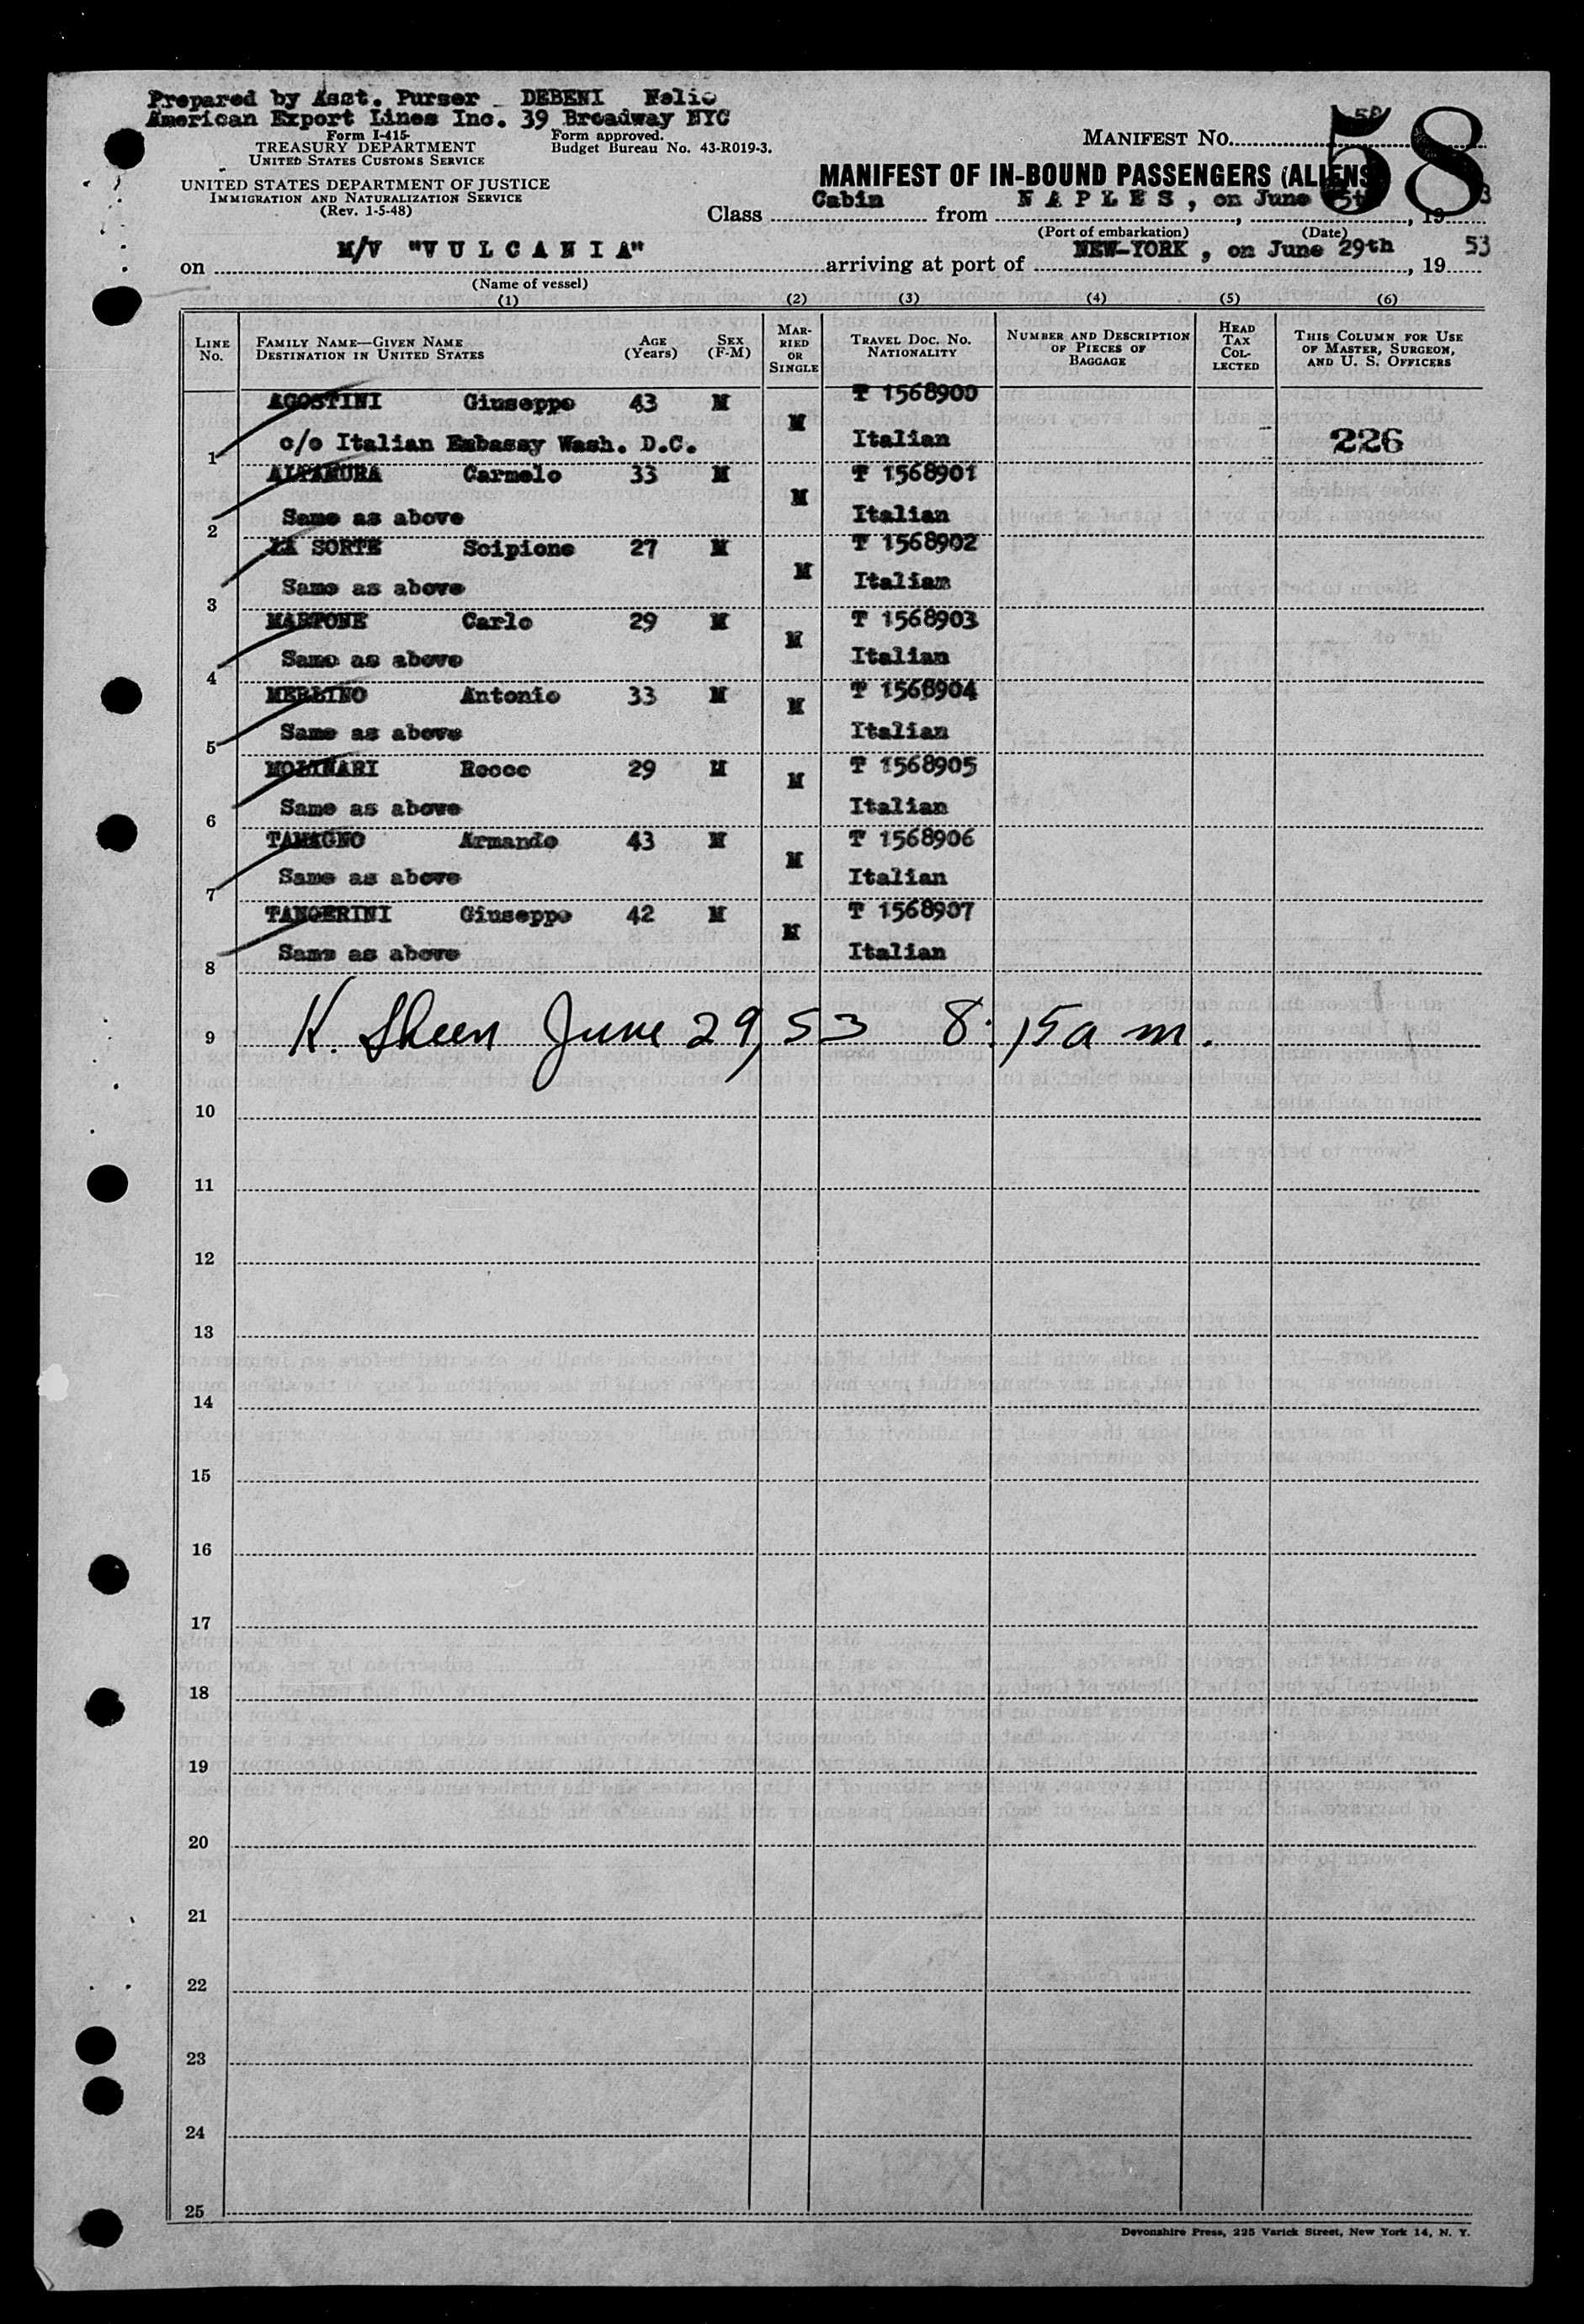 Prepared by Asst. Purser DEBENI Nelio
American Export Lines Inc. 39 Broadway NYC
Form I-415
TREASURY DEPARTMENT
UNITED STATES CUSTOMS SERVICE
Form approved.
Budget Bureau No. 43-R019-3.
MANIFEST NO. 58
58
UNITED STATES DEPARTMENT OF JUSTICE
IMMIGRATION AND NATURALIZATION SERVICE
(Rev. 1-5-48)
MANIFEST OF IN-BOUND PASSENGERS (ALIENS
Class Cabin from N A P L E S , on June , 19 3
(Port of embarkation) (Date)
on M/V "V U L C A N I A" arriving at port of NEW-YORK , on June 29th , 19 53
(Name of vessel)
(1) (2) (3) (4) (5) (6)
LINE No.
FAMILY NAME—GIVEN NAME
DESTINATION IN UNITED STATES
AGE (Years)
SEX (F-M)
MARRIED OR SINGLE
TRAVEL DOC. NO.
NATIONALITY
NUMBER AND DESCRIPTION OF PIECES OF BAGGAGE
HEAD TAX COLLECTED
THIS COLUMN FOR USE OF MASTER, SURGEON, AND U. S. OFFICERS
AGOSTINI Giuseppe 43 M M T 1568900
1 c/o Italian Embassy Wash. D.C. Italian 226
ALTAMURA Carmelo 33 M M T 1568901
2 Same as above Italian
LA SORTE Scipione 27 M M T 1568902
3 Same as above Italian
MARTONE Carlo 29 M M T 1568903
4 Same as above Italian
MERLINO Antonio 33 M M T 1568904
5 Same as above Italian
MOLINARI Rocco 29 M M T 1568905
6 Same as above Italian
TAMAGNO Armando 43 M M T 1568906
7 Same as above Italian
TANGERINI Giuseppe 42 M M T 1568907
8 Same as above Italian
9 K. Sheen June 29, 53 8:15 a m.
10
11
12
13
14
15
16
17
18
19
20
21
22
23
24
25
Devonshire Press, 225 Varick Street, New York 14, N. Y.